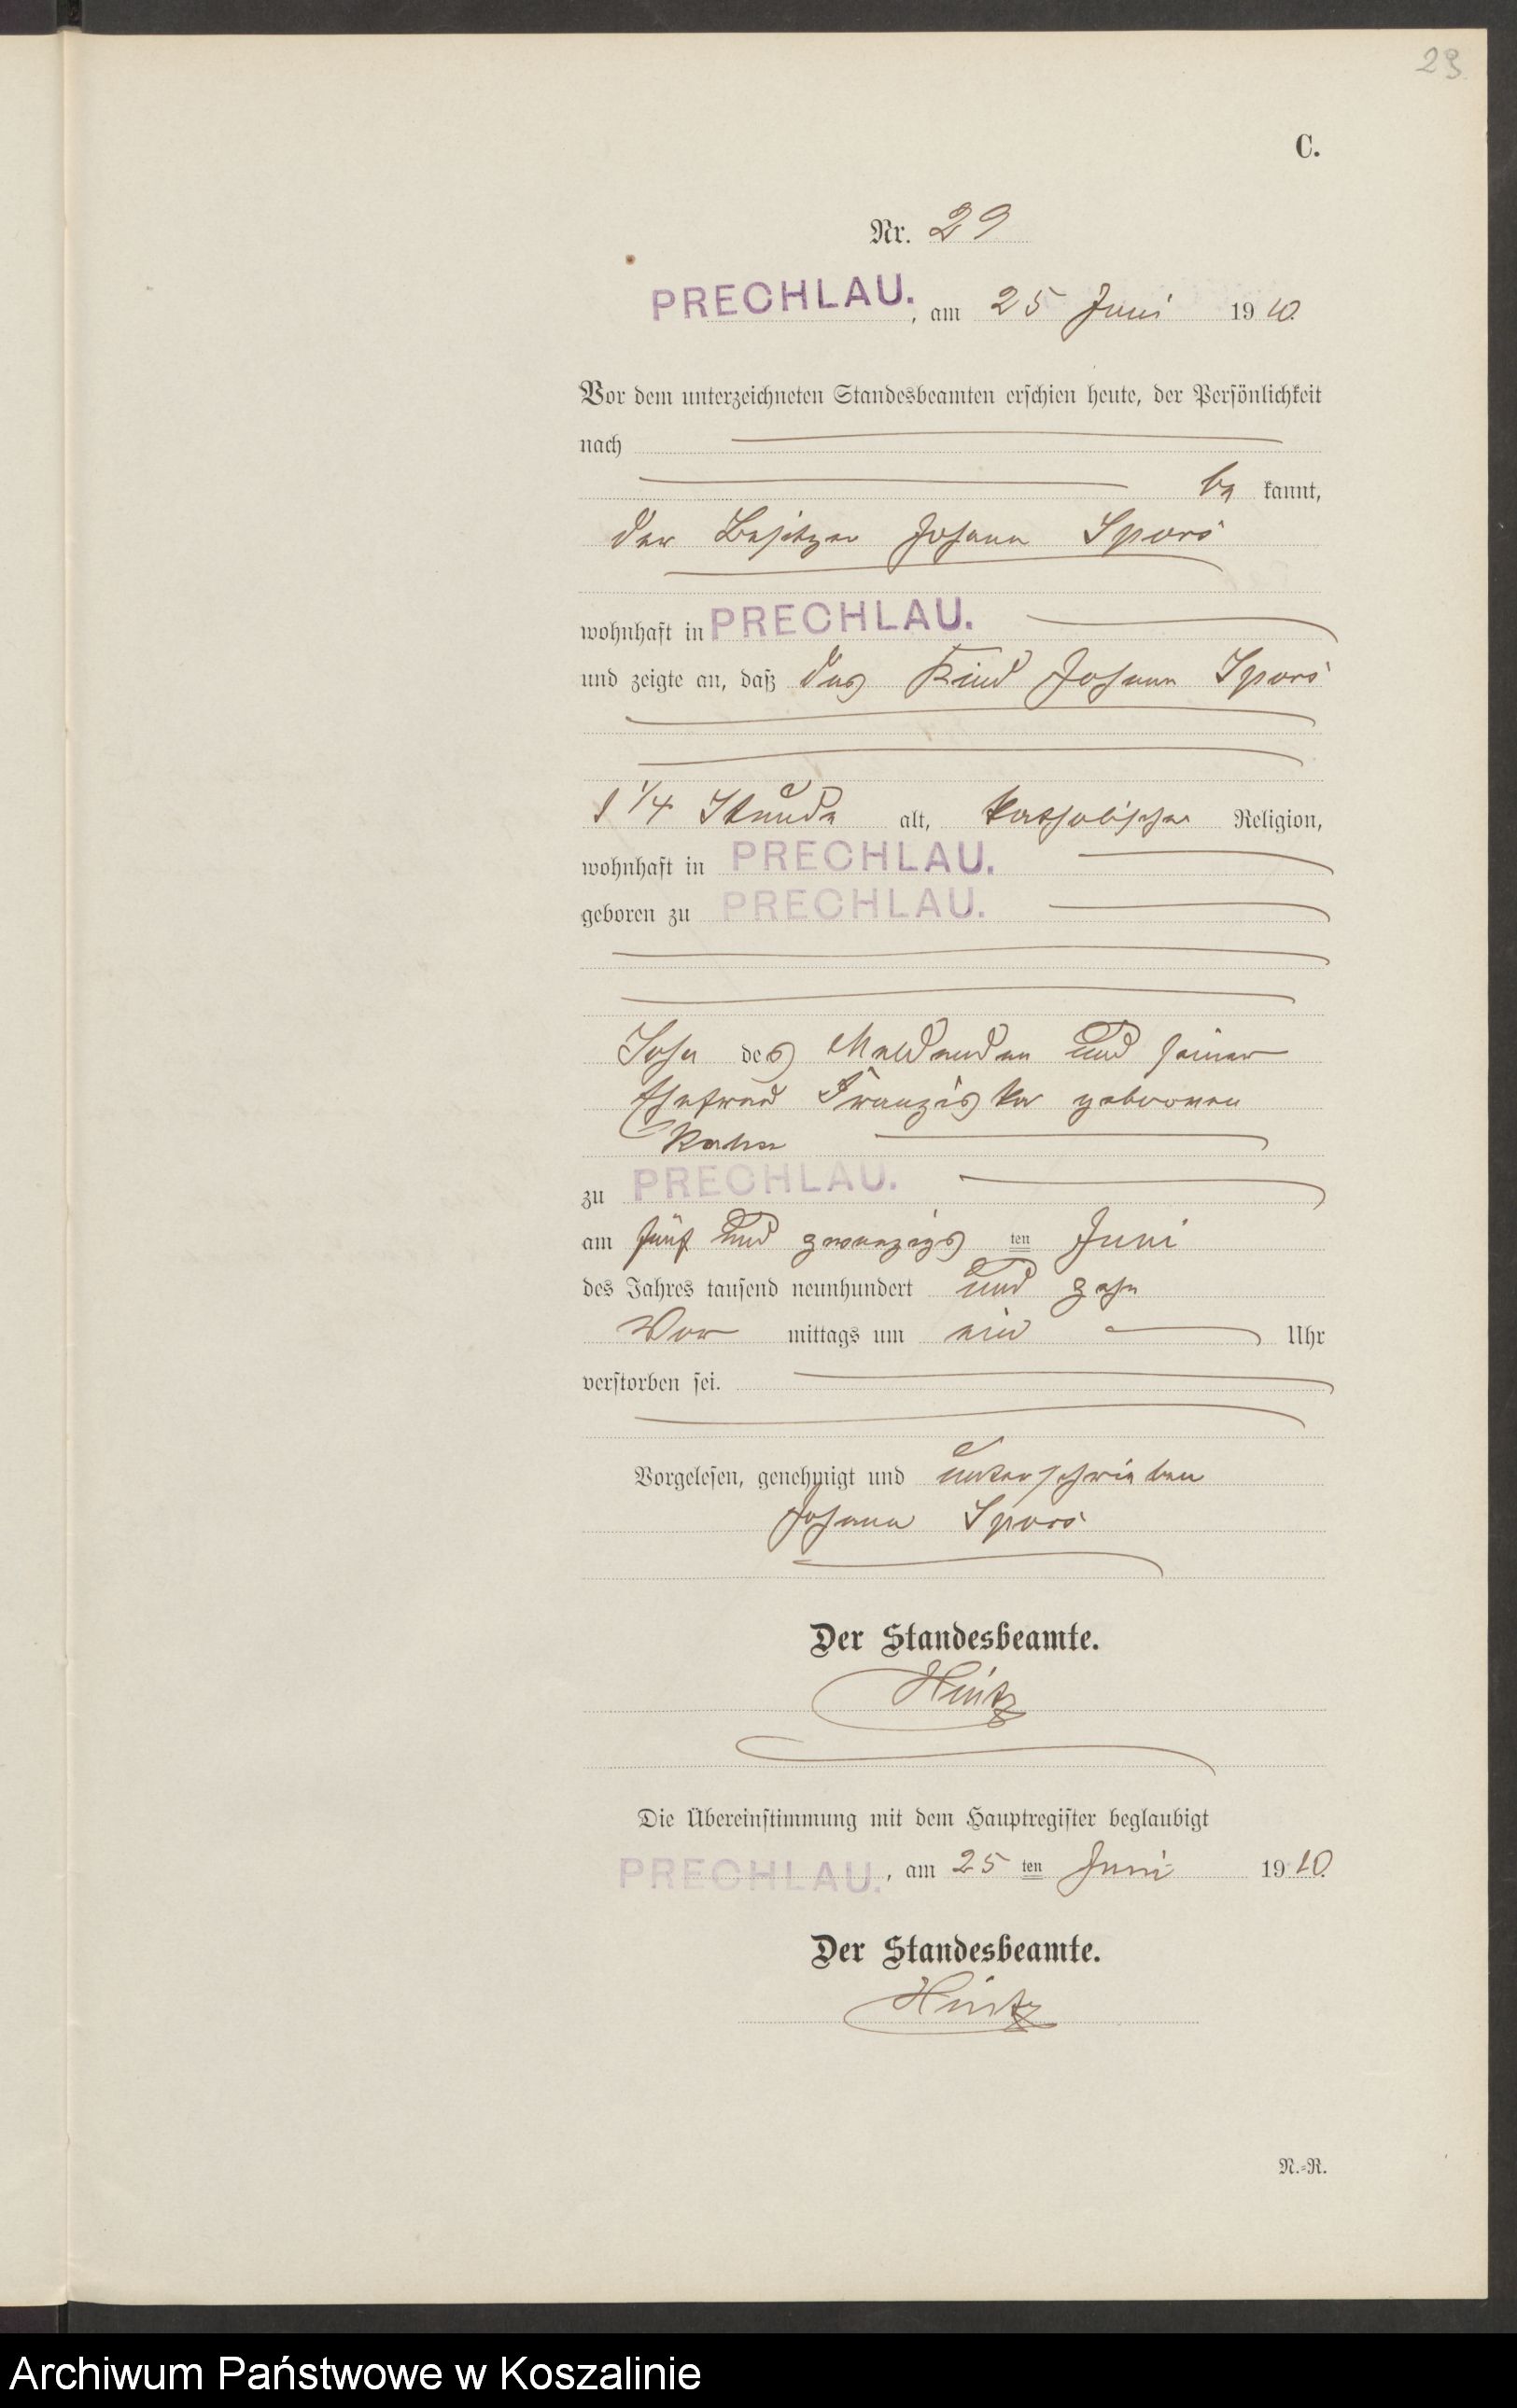 29
C.
Nr. 29
PRECHLAU. , am 25 Juni 1910.
Vor dem unterzeichneten Standesbeamten erschien heute, der Persönlichkeit
nach
be kannt,
der Besitzer Johann Spors
wohnhaft in PRECHLAU.
und zeigte an, daß das Kind Johann Spors
1/4 Stunde alt, katholischer Religion,
wohnhaft in PRECHLAU.
geboren zu PRECHLAU.
Sohn des Meldenden und seiner
Ehefrau Franziska geborenen
zu PRECHLAU.
am fünf und zwanzigs ten Juni
des Jahres tausend neunhundert und zehn
Vor mittags um ein Uhr
verstorben sei.
Vorgelesen, genehmigt und unterschrieben
Johann Spors
Der Standesbeamte.
Hintz
Die Übereinstimmung mit dem Hauptregister beglaubigt
PRECHLAU. , am 25 ten Juni 1910.
Der Standesbeamte.
Hintz
N.=R.
Archiwum Państwowe w Koszalinie